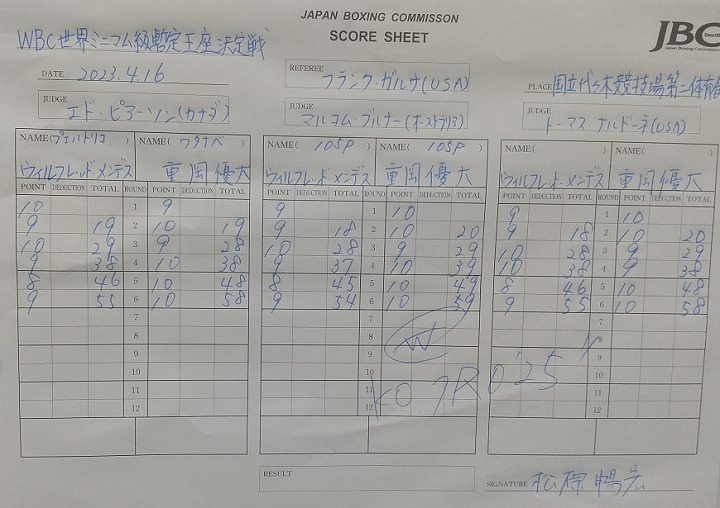 JAPAN BOXING COMMISSON
SCORE SHEET
JBC
WBC世界ミニマム級暫定王座決定戦
DATE 2023.4.16
REFEREE フランク・ガルサ(USA)
PLACE 国立代々木競技場第二体育
JUDGE エド・ピアーソン(カナダ)
JUDGE マルコム・ブルナー(オーストラリア)
JUDGE トーマス・ナルドーネ(USA)
NAME(プエルトリコ) NAME(ワタナベ) NAME(105P) NAME(105P) NAME( ) NAME( )
ウィルフレッド メンデス 重岡優大 ウィルフレッド メンデス 重岡優大 ウィルフレッド・メンデス 重岡優大
POINT DEDUCTION TOTAL ROUND POINT DEDUCTION TOTAL POINT DEDUCTION TOTAL ROUND POINT DEDUCTION TOTAL POINT DEDUCTION TOTAL ROUND POINT DEDUCTION TOTAL
10 1 9 9 1 10 9 1 10
9 19 2 10 19 9 18 2 10 20 9 18 2 10 20
10 29 3 9 28 10 28 3 9 29 10 28 3 9 29
9 38 4 10 38 9 37 4 10 39 10 38 4 9 38
8 46 5 10 48 8 45 5 10 49 8 46 5 10 48
9 55 6 10 58 9 54 6 10 59 9 55 6 10 58
7 7 7
8 8 W 8
9 9 9
10 10 10
11 11 11
12 12 12
KO 7R 0'25"
RESULT
SIGNATURE 松原暢宏